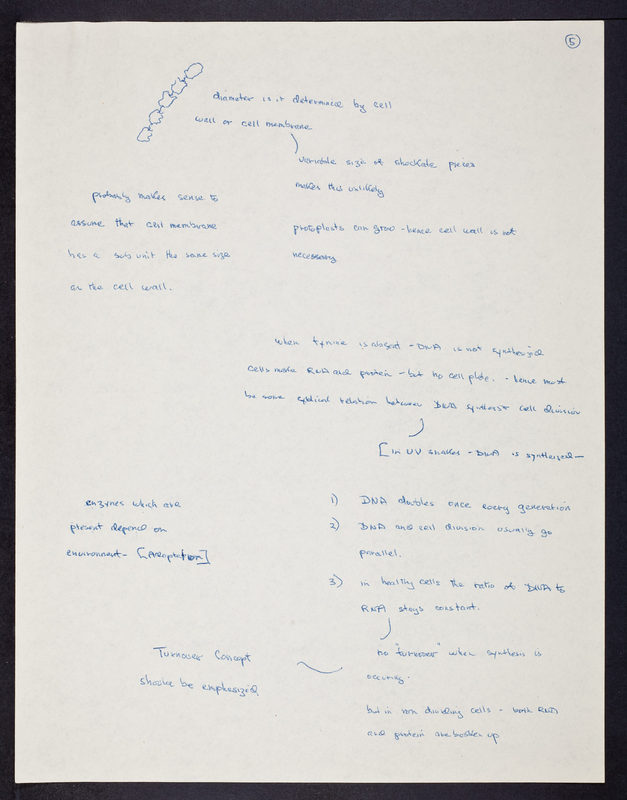 5
diameter is it determined by cell
wall or cell membrane
variable size of shockate pieces
makes this unlikely
probably makes sense to
assume that cell membrane
has a sub unit the same size
as the cell wall.
protoplasts can grow - hence cell wall is not
necessary
when tymine is absent - DNA is not synthesized
cells make RNA and protein - but no cell plate. - hence must
be some cyclical relation between DNA synthesis + cell division
[in UV snakes - DNA is synthesized -
enzymes which are
present depend on
environment - [Adaptation]
1) DNA doubles once every generation
2) DNA and cell division usually go
parallel.
3) in healthy cells the ratio of DNA to
RNA stays constant.
no "turnover" when synthesis is
occuring.
Turnover Concept
should be emphasized
but in non dividing cells - both RNA
and protein are broken up